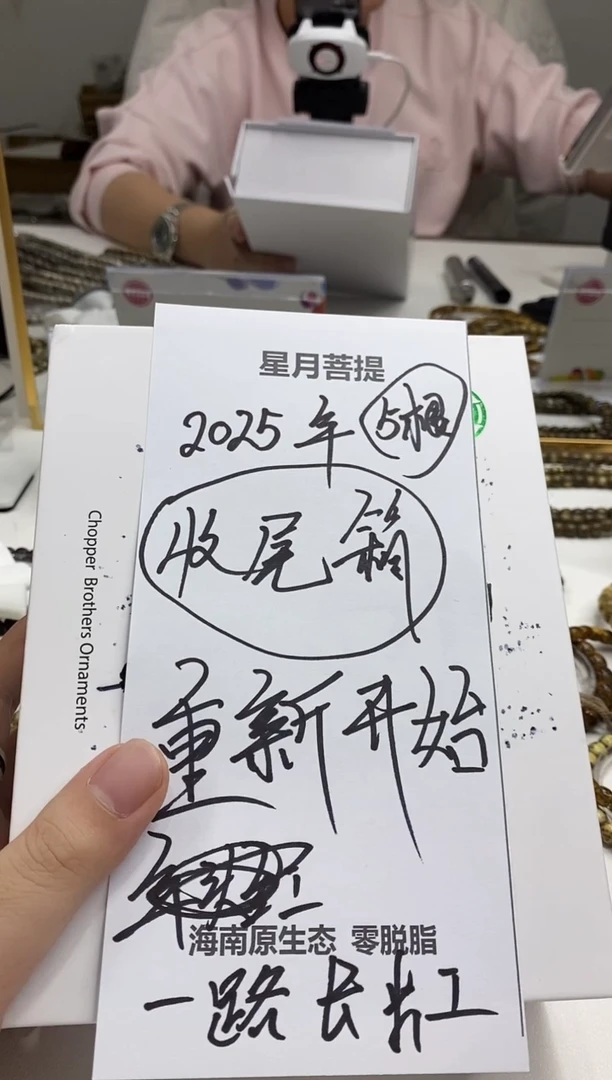 星月菩提
2025年 5根
收尾箱
重新开始
海南原生态 零脱脂
一路长红
Chopper Brothers Ornaments